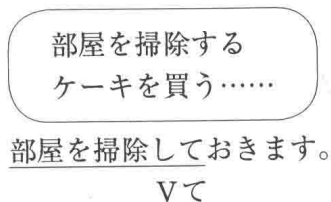 部屋を掃除する
ケーキを買う……
部屋を掃除しておきます。
Vて